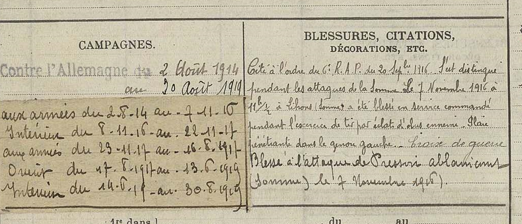 CAMPAGNES.
Contre l'Allemagne du 2 Août 1914
au 20 Août 1919
aux armées du 2.8.14 au 7-11-16
Intérieur du 8-11-16 au 22-11-17
aux armées du 23-11-17 au 16-8-1917
Orient du 17-8-1917 au 13-6-1919
Intérieur du 14-6-19 au 30-8-1919
BLESSURES, CITATIONS,
DÉCORATIONS, ETC.
Cité à l'ordre du 6e R.A.P. du 20 Septbre 1916. S'est distingué
pendant les attaques de la Somme. Le 7 Novembre 1916 à
à Lihons (Somme) a été blessé en service commandé
pendant l'exercice de tir par éclat d'obus ennemi. Plaie
pénétrante dans le genou gauche. Croix de guerre
Blessé à l'attaque de Pressoir
(Somme) le 7 Novembre 1916.
1re dans l
du au